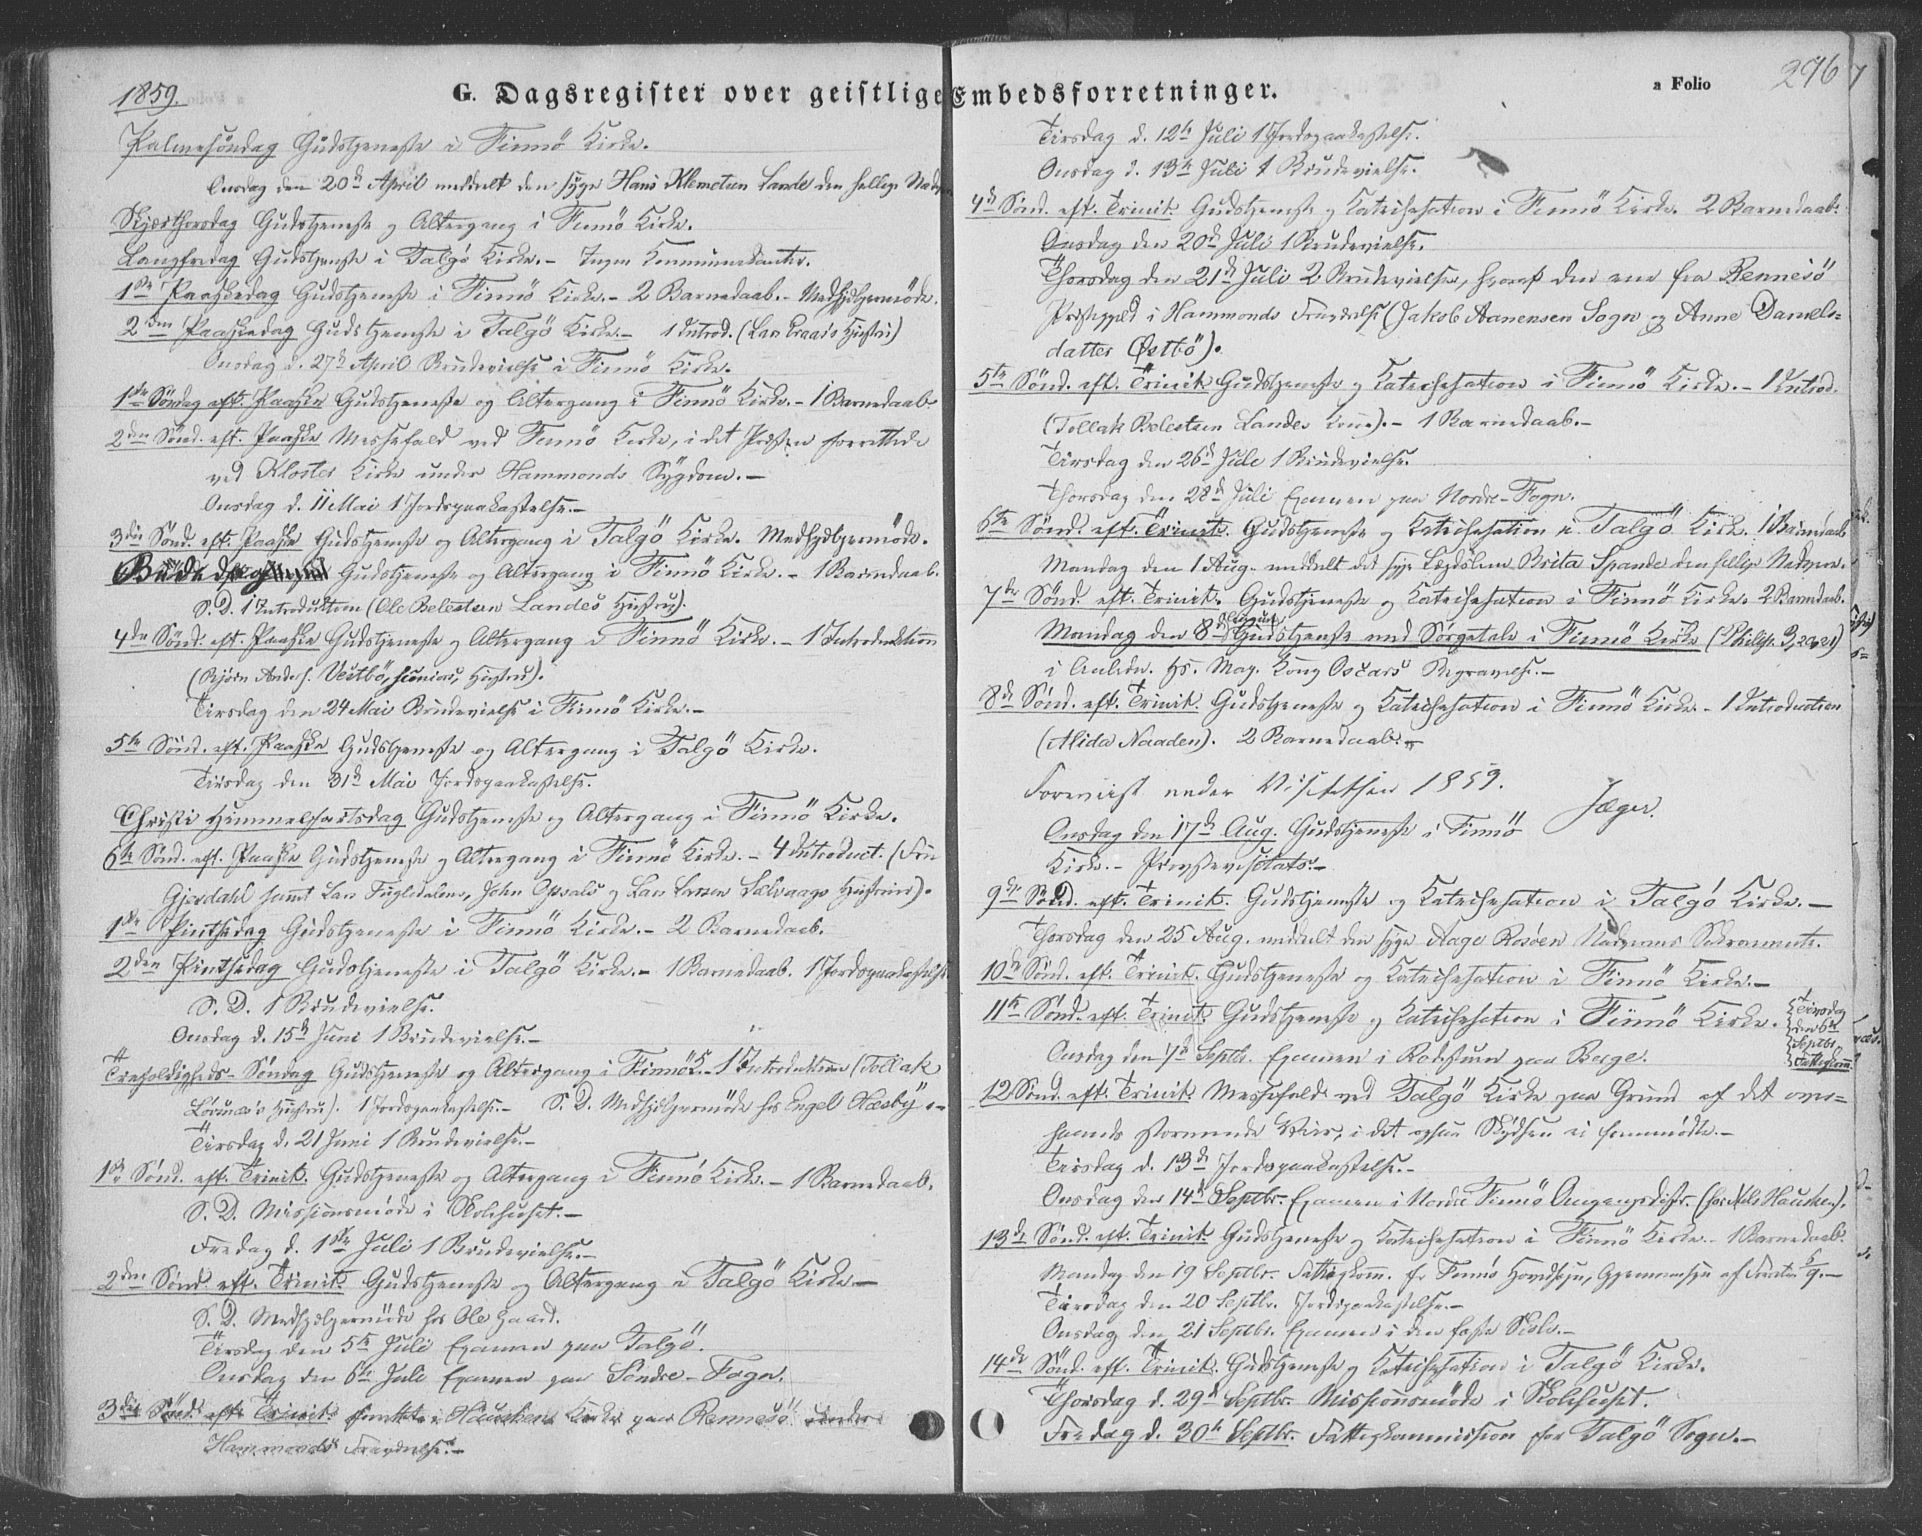 1859.
G. Dagsregister over geistlige Embedsforretninger.
Palmesöndag Gudstjeneste i Finnö Kirke.
Onsdag den 20d April meddelt den syge Hans Klemetsen Lande den hellige Nadv
Skjærthorsdag Gudstjeneste og Altergang i Finnö Kirke.
Langfredag Gudstjeneste i Talgö Kirke. - Ingen Kommunikanter.
1ste Paaskedag Gudstjeneste i Finnö Kirke. - 2 Barnedaab. - Medhjelpermöde.
2den Paaskedag Gudstjeneste i Talgö Kirke. - 1 Introd. (Lars Hustru)
Onsdag d. 27d April Brudevielse i Finnö Kirke.
1ste Söndag eft. Paaske Gudstjeneste og Altergang i Finnö Kirke. - 1 Barnedaab.
2den Sönd. eft. Paaske Messefald ved Finnö Kirke, i det Præsten forrettede
ved Kloster Kirke under Hammonds Sygdom. -
Onsdag d. 11 Mai 1 Jordspaakastelse. -
3die Sönd. eft. Paaske Gudstjeneste og Altergang i Talgö Kirke. Medhjelpermöde.
Bededag Gudstjeneste og Altergang i Finnö Kirke. - 1 Barnedaab.
S. D. 1 Introduktion (Ole Belestsen Landes Hustru).
4de Sönd. eft. Paaske Gudstjeneste og Altergang i Finnö Kirke. - 1 Introduktion
(Björn Anders. Vestbö, Hustru).
Tirsdag den 24 Mai Brudevielse i Finnö Kirke. -
5te Sönd. eft. Paaske Gudstjeneste og Altergang i Talgö Kirke.
Tirsdag den 31d Mai Jordspaakastelse.
Christi Himmelfartsdag Gudstjeneste og Altergang i Finnö Kirke.
6te Sönd. eft. Paaske Gudstjeneste og Altergang i Finnö Kirke. - 4 Introduct. (Fru
Gjerdahl samt Lars Fugledalens, John Opsals og Lars Larsen Selvaags Hustruer).
1ste Pintsedag Gudstjeneste i Finnö Kirke. - 2 Barnedaab.
2den Pintsedag Gudstjeneste i Talgö Kirke. - 1 Barnedaab. 1 Jordspaakastelse
S. D. 1 Brudevielse.
Onsdag d. 15d Juni 1 Brudevielse. -
Trefoldigheds-Söndag Gudstjeneste og Altergang i Finnö K. - 1 Introduktion (Tollak
Hustru). 1 Jordspaakastelse. - S. D. Medhjelpermöde hos Engel Hæsby. -
Tirsdag d. 21 Juni 1 Brudevielse. -
1ste Sönd. eft. Trinit. Gudstjeneste og Altergang i Finnö Kirke. - 1 Barnedaab.
S. D. Missionsmöde i Skolehuset. -
Fredag d. 1ste Juli 1 Brudevielse. -
2den Sönd. eft. Trinit. Gudstjeneste og Altergang i Talgö Kirke -
S. D. Medhjelpermöde hos Ole Gaard.
Tirsdag den 5te Juli Examen paa Talgö.
Onsdag den 6te Juli Examen paa Söndre-Fogn.
3die Sönd. eft. Trinit. i Hauskens Kirke paa Rennesö under
Hammonds Fraværelse. -
a Folio 296
Tirsdag d. 12te Juli 1 Jordspaakastelse.
Onsdag d. 13de Juli 1 Brudevielse.
4de Sönd. eft. Trinit. Gudstjeneste og Katechisation i Finnö Kirke. 2 Barnedaab.
Onsdag den 20de Juli 1 Brudevielse.
Thorsdag den 21de Juli 2 Brudevielser, hvoraf den ene fra Rennesö
Præstegjeld i Hammonds Fraværelse (Jakob Aanensen Sogn og Anne Daniels-
datter Østbö).
5te Sönd. eft. Trinit. Gudstjeneste og Katechisation i Finnö Kirke. - 1 Introd.
(Tollak Belestsen Landes Kone). - 1 Barnedaab. -
Tirsdag den 26d Juli 1 Brudevielse.
Thorsdag den 28d Juli Examen paa Nordre-Fogn.
6te Sönd. eft. Trinit. Gudstjeneste og Katechisation i Talgö Kirke. 1 Barnedaab
Mandag den 1 Aug. meddelt det syge Lægdslem Brita Spande den hellige Nadvere.
7de Sönd. eft. Trinit. Gudstjeneste og Katechisation i Finnö Kirke. 2 Barnedaab.
Mandag den 8d August Gudstjeneste med Sörgetale i Finnö Kirke (Philip. 3, 20 & 21)
i Anledn. Hs. Maj. Kong Oscars Begravelse. -
8de Sönd. eft. Trinit. Gudstjeneste og Katechisation i Finnö Kirke. - 1 Introduction
(Alida Naaden). 2 Barnedaab. -
Foreviist under Visitatsen 1859.
Jæger.
Onsdag den 17d Aug. Gudstjeneste i Finnö
Kirke. - Provstevisitats. -
9de Sönd. eft. Trinit. Gudstjeneste og Katechisation i Talgö Kirke. -
Thorsdag den 25 Aug. meddelt den syge Aage Rosöen Nadverens Sakramente.
10de Sönd. eft. Trinit. Gudstjeneste og Katechisation i Finnö Kirke. -
11te Sönd. eft. Trinit. Gudstjeneste og Katechisation i Finnö Kirke.
Tirsdag
den 6te
Septbr.
Fattigkom.
Onsdag den 7d Septbr. Examen i Rodstuen paa Berge.
12 Sönd. eft. Trinit. Messefald ved Talgö Kirke paa Grund af det over-
haands stormende Veir, i det ogsaa Skydsen ei fremmödte. -
Tirsdag d. 13d Jordspaakastelse. -
Onsdag den 14d Septbr. Examen i Nordre Finnö Omgangsdistr. (hos Nils Hausken).
13de Sönd. eft. Trinit. Gudstjeneste og Katechisation i Finnö Kirke. 1 Barnedaab.
Mandag den 19 Septbr. Fattigkomm. for Finnö Hovedsogn, 6/9. -
Tirsdag den 20 Septbr. Jordspaakastelse. -
Onsdag den 21 Septbr. Examen i den faste Skole. -
14de Sönd. eft. Trinit. Gudstjeneste og Katechisation i Talgö Kirke.
Thorsdag d. 29d Septbr. Missionsmöde i Skolehuset.
Fredag d. 30te Septbr. Fattigkommission for Talgö Sogn. -